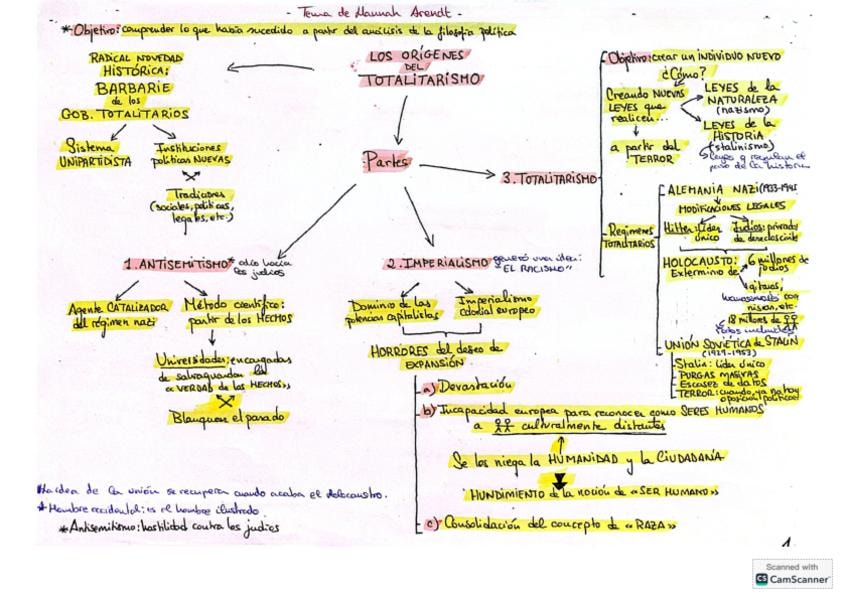 - Tema de Hannah Arendt -
* Objetivo: comprender lo que había sucedido a partir del análisis de la filosofía política
RADICAL NOVEDAD
HISTÓRICA:
BARBARIE
de los
GOB. TOTALITARIOS
Sistema
UNIPARTIDISTA
Instituciones
políticas NUEVAS
Tradiciones
(sociales, políticas,
legales, etc.)
LOS ORÍGENES
DEL
TOTALITARISMO
Partes
1. ANTISEMITISMO * odio hacia
los judíos
Agente CATALIZADOR
del régimen nazi
Método científico:
partir de los HECHOS
Universidades: encargadas
de salvaguardar la
«VERDAD de los HECHOS»
Blanquear el pasado
2. IMPERIALISMO generó una idea:
"EL RACISMO"
Dominio de las
potencias capitalistas
Imperialismo
colonial europeo
HORRORES del deseo de
EXPANSIÓN
a) Devastación
b) Incapacidad europea para reconocer como SERES HUMANOS
a culturalmente distantes
Se les niega la HUMANIDAD y la CIUDADANÍA
HUNDIMIENTO de la noción de «SER HUMANO»
c) Consolidación del concepto de «RAZA»
3. TOTALITARISMO
Objetivo: crear un INDIVIDUO NUEVO
¿Cómo?
Creando NUEVAS
LEYES que
realicen...
a partir del
TERROR
LEYES de la
NATURALEZA
(nazismo)
LEYES de la
HISTORIA
(stalinismo)
Leyes q regulan el
paso de la historia
Regímenes
TOTALITARIOS
ALEMANIA NAZI (1933-1945
MODIFICACIONES LEGALES
Hitler: líder
único
Judíos: privados
de derechos
HOLOCAUSTO:
Exterminio de
6 millones de
judíos
gitanos,
homosexuales, comu
nistas, etc.
18 millones de
UNIÓN SOVIÉTICA de STALIN
(1929-1953)
Stalin: líder único
PURGAS MASIVAS
Escasez de datos
TERROR: cuando ya no hay
oposición política
La idea de la unión se recupera cuando acaba el Holocausto.
* Hombre occidental: es el hombre ilustrado
* Antisemitismo: hostilidad contra los judíos
1
Scanned with
CS CamScanner